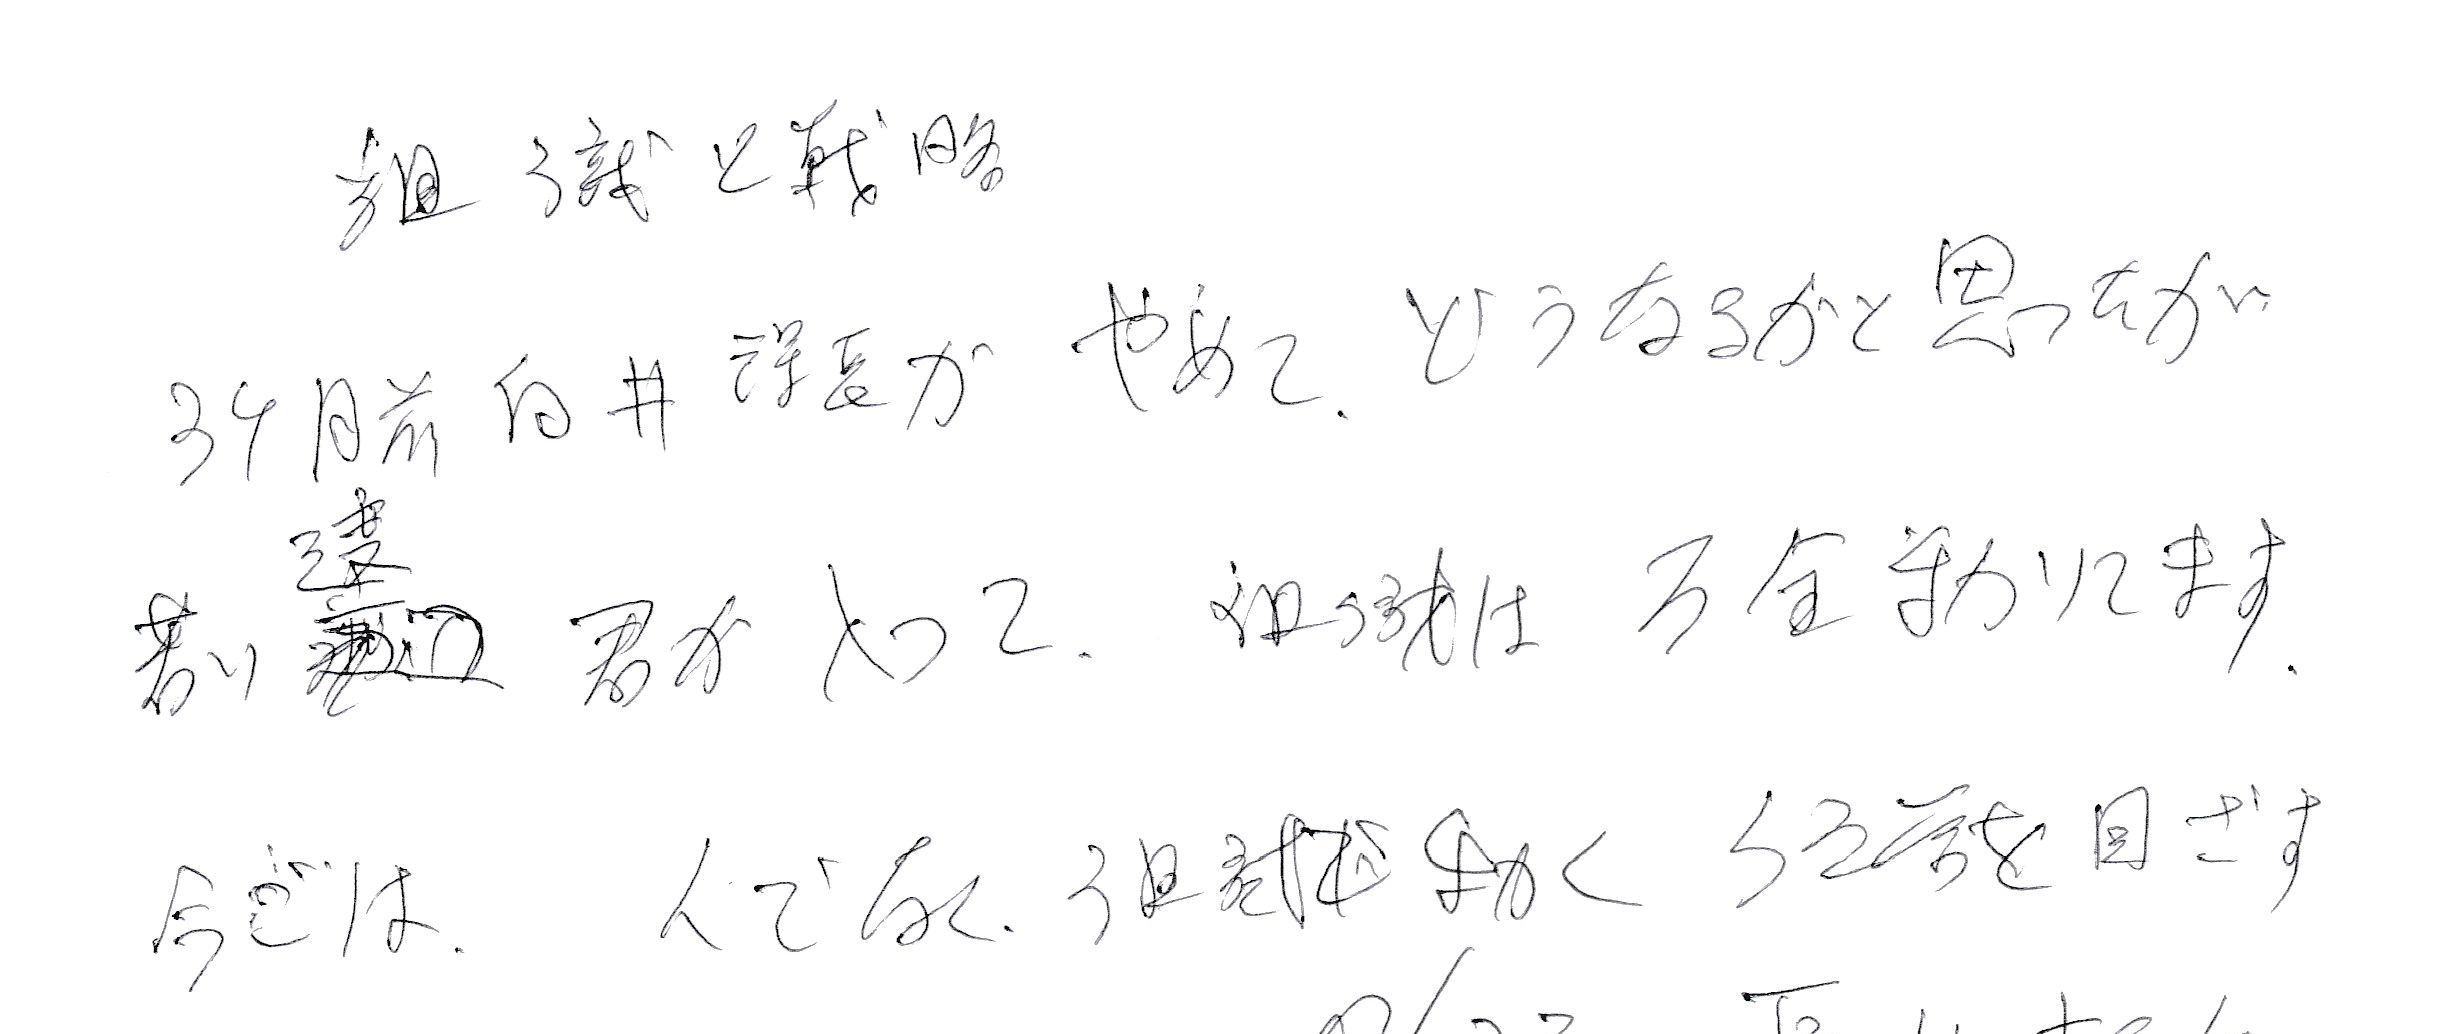 組織と戦略
3ヶ月前白井課長がやめて.どうなるかと思ったが
若い 君がやって.組織は万全動いてます.
今では.人でなく.組織が動く経営を目ざす